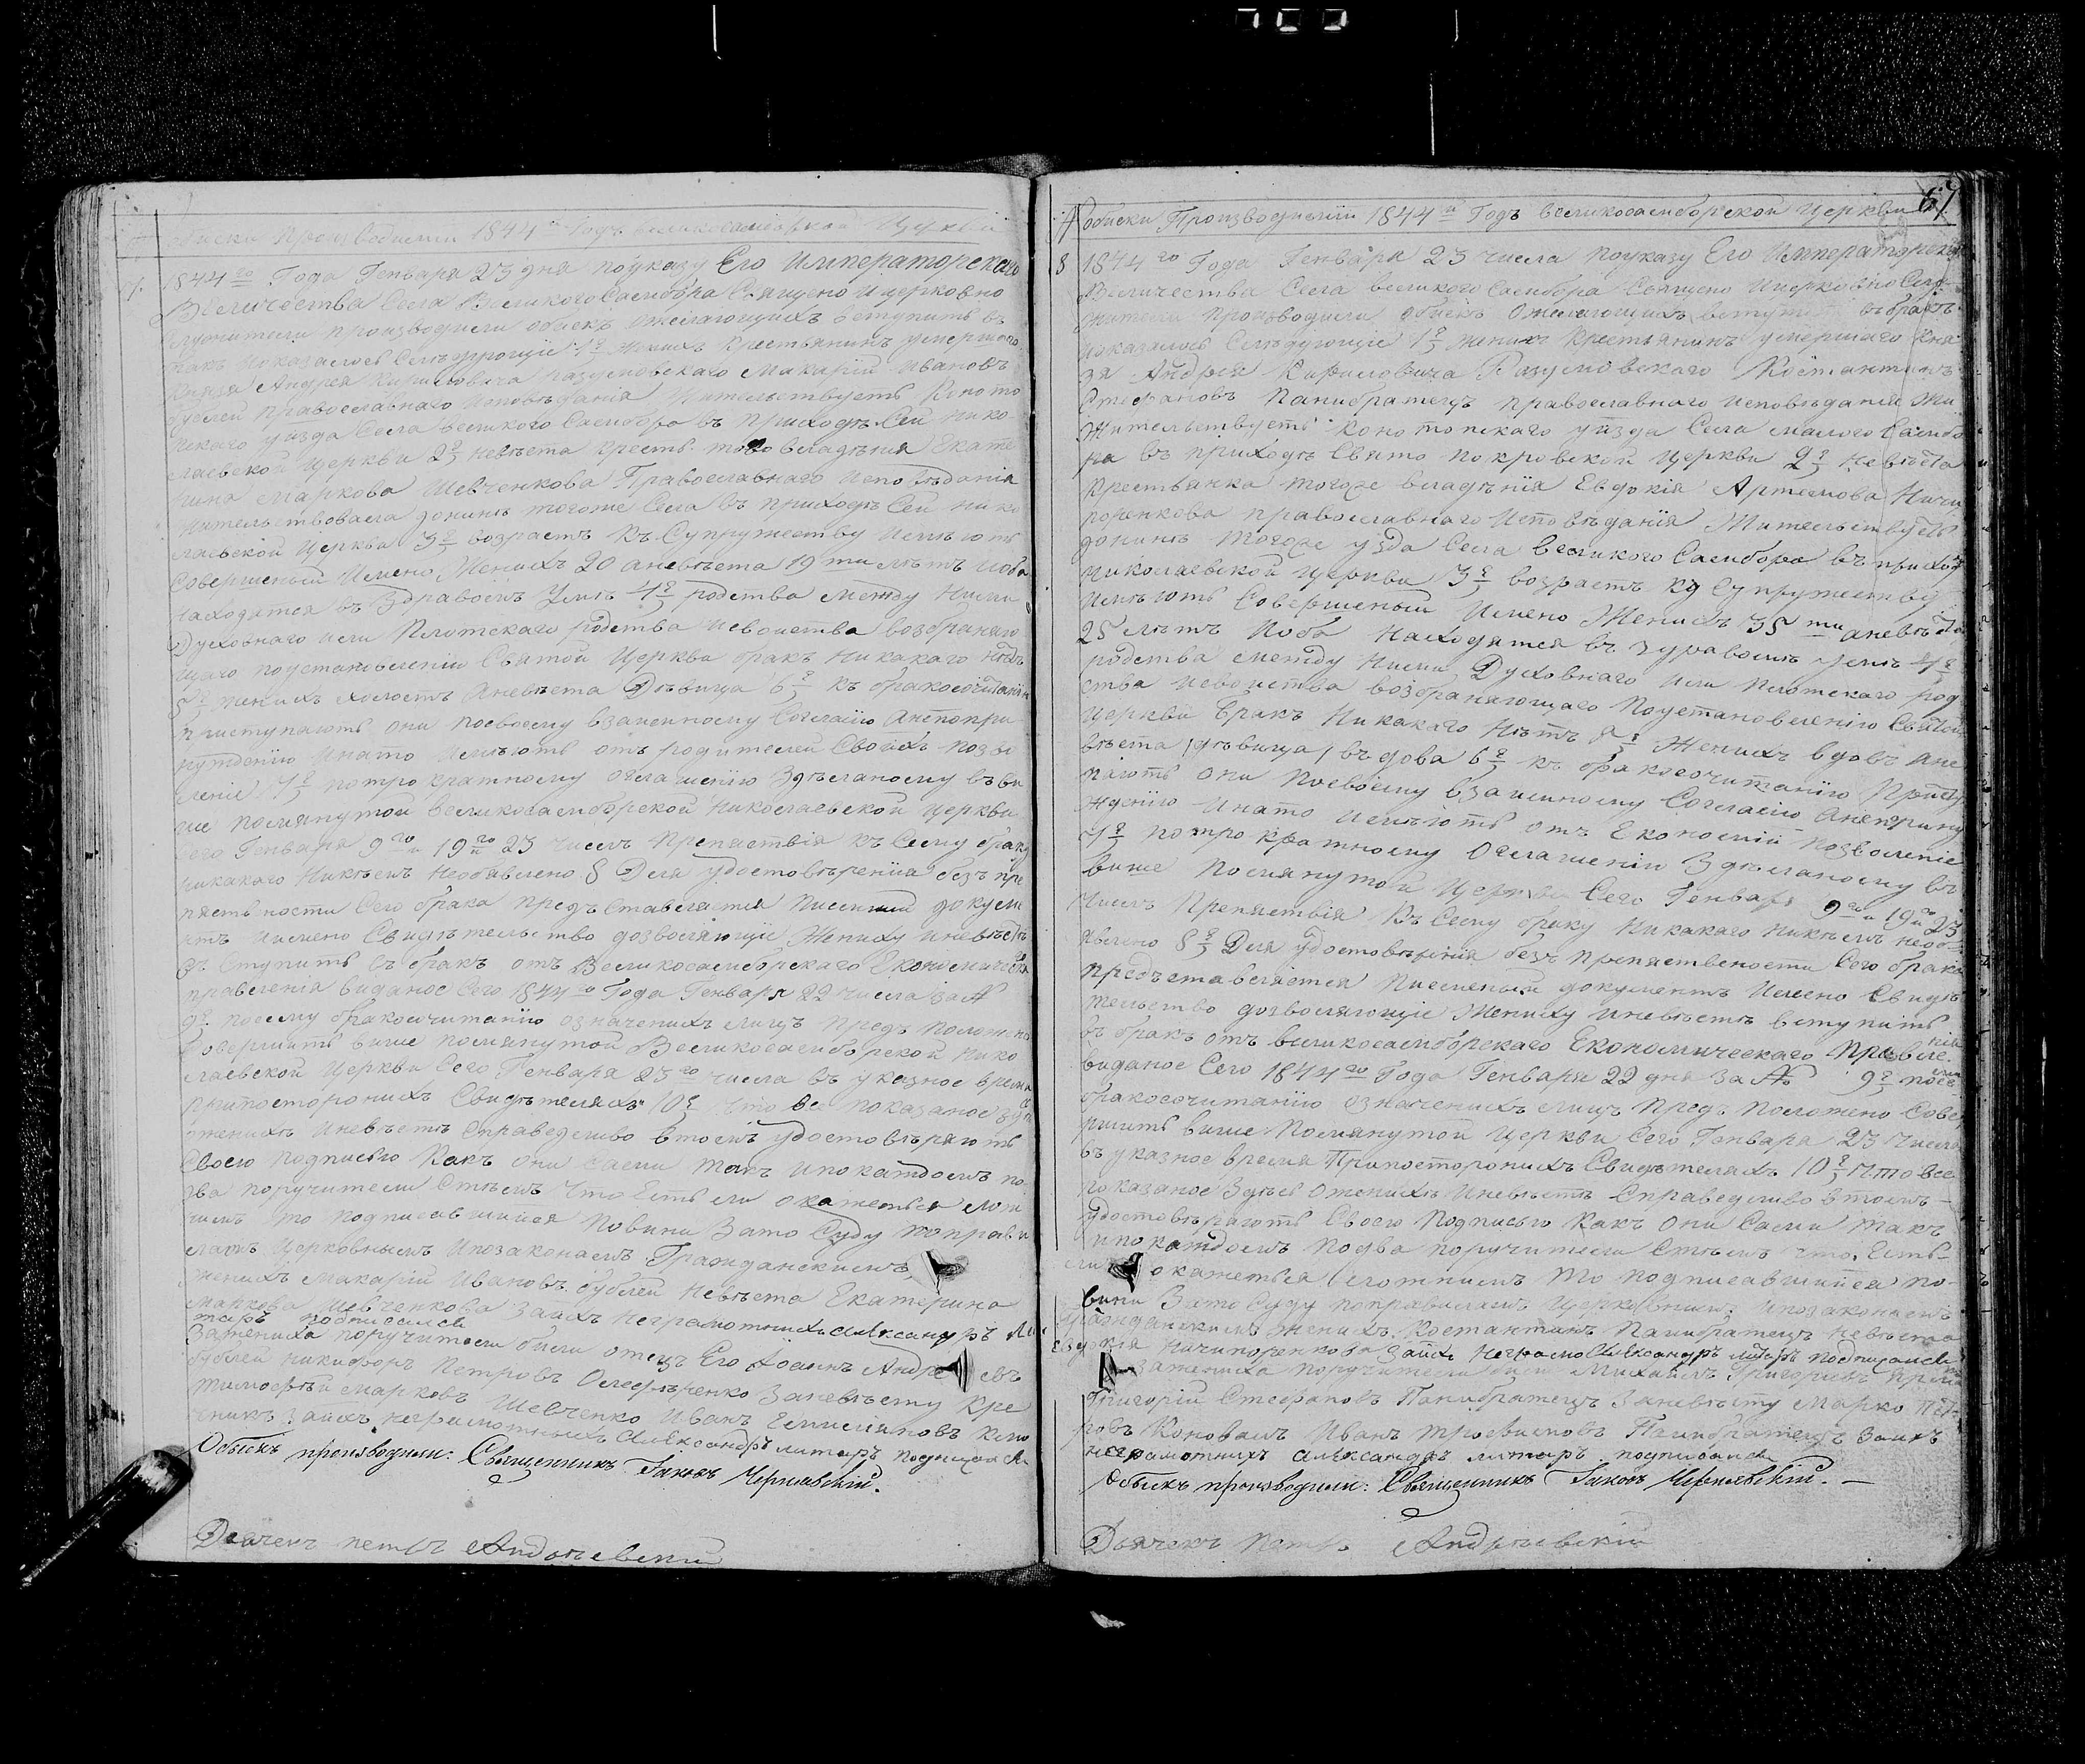 обиски Производимии 1844й Годъ великосамборской Церкви
7. 1844го Года Генваря 23 дня поуказу Его Императорскаго
Величества Села Великого Самбора Священо Ицерковно
служители производили обискъ ожелающихъ вступить въ
бракъ Показалось Слѣдующие 1е Женихъ Крестьянинъ умершаго
Князя Андрея Кириловича Разумовскаго Макарій Ивановъ
Бублей православнаго Исповѣданія Жительствуетъ Коното
пскаго уѣзда Села великого Самбора въ приходѣ Сей Нико
лаевской Церкви 2е невѣста крест. того владѣния Екате
рина Маркова Шевченкова Православнаго Исповѣдания
Жительствовала донинѣ тогоже Села въ приходѣ Сей нико
лаевской Церкви 3е возрастъ къ Супружеству Имѣютъ
Совершеный Имено Женихъ 20 аневѣста 19ти лѣтъ Иоба
находятся въ Здравомъ Умѣ 4е родства между Ними
Духовнаго или Плотскаго родства исвойства возбраняю
щаго поустановлению Святой Церкви бракъ Никакаго нѣтъ
5е женихъ холостъ аневѣста Дѣвица 6е къ бракосочитанию
приступаютъ они посвоему взаимному Согласию анепопри
нуждению Инато Имѣютъ отъ родителей Своихъ позво
ление 7е потрократному оглашению Здѣланому въ ви
ше помянутой великосамборской Николаевской Церкви
Сего Генваря 9го 19го и 23 числъ Препятствія къ Сему браку
никакаго Никѣмъ Необявлено 8 Для удостовѣрения безъ пре
пятствности Сего брака предъставляется писмений докуме
нтъ Имено Свидѣтельство дозволяющие Жениху иневѣстѣ
въ Ступить въ бракъ отъ Великосамборскаго Економическаго
правления виданое Сего 1844го Года Генваря 22 числа за №
9е. посему бракосочитанию означенихъ лицъ предъ положено
Совершить више помянутой Великосамборской Нико
лаевской Церкви Сего Генваря 23го числа въ указное время
припосторонихъ Свидѣтеляхъ 10е Что все показаное здѣсь
оженихѣ Иневѣстѣ Справедливо втомъ удостовѣряютъ
Своею подписью Какъ они сами такъ ипокаждомъ по
два поручители Стѣмъ что Естьли окажеться лож
нимъ то подписавшийся Повини Зато Суду поправи
ламъ Церковнымъ Ипозаконамъ Гражданскимъ
женихъ Макарій Ивановъ Бублей Невѣста Екатерина
Маркова Шевченкова Заихъ неграмотнихъ Александръ Ли
таръ подписался
Зажениха поручители били отецъ Его Иоаннъ Андреевъ
Бублей Никифоръ Петровъ Олефѣренко Заневѣсту Кре
Тимофѣй Марковъ Шевченко Иванъ Емилияновъ
Заихъ неграмотныхъ Александръ литаръ подписался
Обыскъ производили: Священникъ Іаковъ Чернявскій.
Дьячекъ петръ Андрѣевский
67
обиски Производимии 1844й Годъ великосамборской Церкви
8 1844го Года Генваря 23 числа поуказу Его Императорскаго
Величества Села великого Самбора Священо Ицерковно Слу
жители производили обискъ Ожелающихъ вступить въбракъ
показалось Слѣдующие 1е женихъ Крестьянинъ умершаго Кня
зя Андрея Кириловича Разумовскаго Костантинъ
Стефановъ Панибратецъ православнаго исповѣдания Жи
Жительствуетъ конотопскаго уѣзда Села малого Самбо
ра въ приходѣ Свято покровской Церкви 2е Невѣста
Крестьянка тогоже владѣния Евдокія Артемова Ничи
поренкова православнаго Исповѣдания Жительствуетъ
донинѣ Тогоже уѣзда Села великого Самбора въ приходѣ
Николаевской Церкви 3е возрастъ къ Супружеству
Имѣютъ Совершеный Имено Женихъ 35ти аневѣста
25 лѣтъ Иоба Находятся въ Здравомъ умѣ 4е
родства между Ними Духовнаго или плотскаго род
ства исвойства возбраняющаго Поустановлению Святой
Церкви бракъ Никакаго Нѣтъ 5е Женихъ вдовъ Ане
вѣста (дѣвица) въдова 6е къ бракосочитанию Присту
паютъ они Посвоему взаимному Согласию Анеприну
ждению Инато имѣютъ отъ Економий позволение
7е потрократному Оглашению Здѣланому въ
више помянутой Церкви Сего Генваря 9го 19го и 23
Числъ Препятствія къ Сему браку Никакаго никѣмъ необ
явлено 8е Для удостовѣрения безъ препятствености Сего брака
предъставляется писменый документъ Имено Свидѣ
тельство дозволяющие Жениху иневѣстѣ вступить
въ бракъ отъ великосамборскаго Економическаго Правле
ния
виданое Сего 1844го Года Генваря 22 дня за № 9е посе
му
бракосочитанию означенихъ лицъ предъ положено Сове
ршить више помянутой Церкви Сего Генваря 23 числа
въ указное время Припосторонихъ Свидѣтеляхъ 10е Что все
показаное Здѣсь Оженихѣ Иневѣстѣ Справедливо втомъ
удостовѣряютъ Своею Подписью Какъ Они Сами такъ
ипокаждомъ подва поручители Стѣмъ что Есть
ли окажеться ложнимъ То подписавшийся по
вини Зато Суду поправиламъ Церковним: ипозаконамъ
Гражданскимъ женихъ Костантинъ Панибратецъ Невѣста
Евдокия Ничипоренкова Заихъ Неграмо Александръ литаръ подписался
зажениха поручители били Михаилъ Григориевъ
Григорій Стефановъ Панибратецъ Заневѣсту Марко Пет
ровъ Коновалъ Иванъ Трофимовъ Панибратецъ Заихъ
неграмотнихъ Александръ литаръ подписался
Обыскъ производили: Священникъ Іаковъ Чернявскій. —
Дьячекъ Петръ Андрѣевский